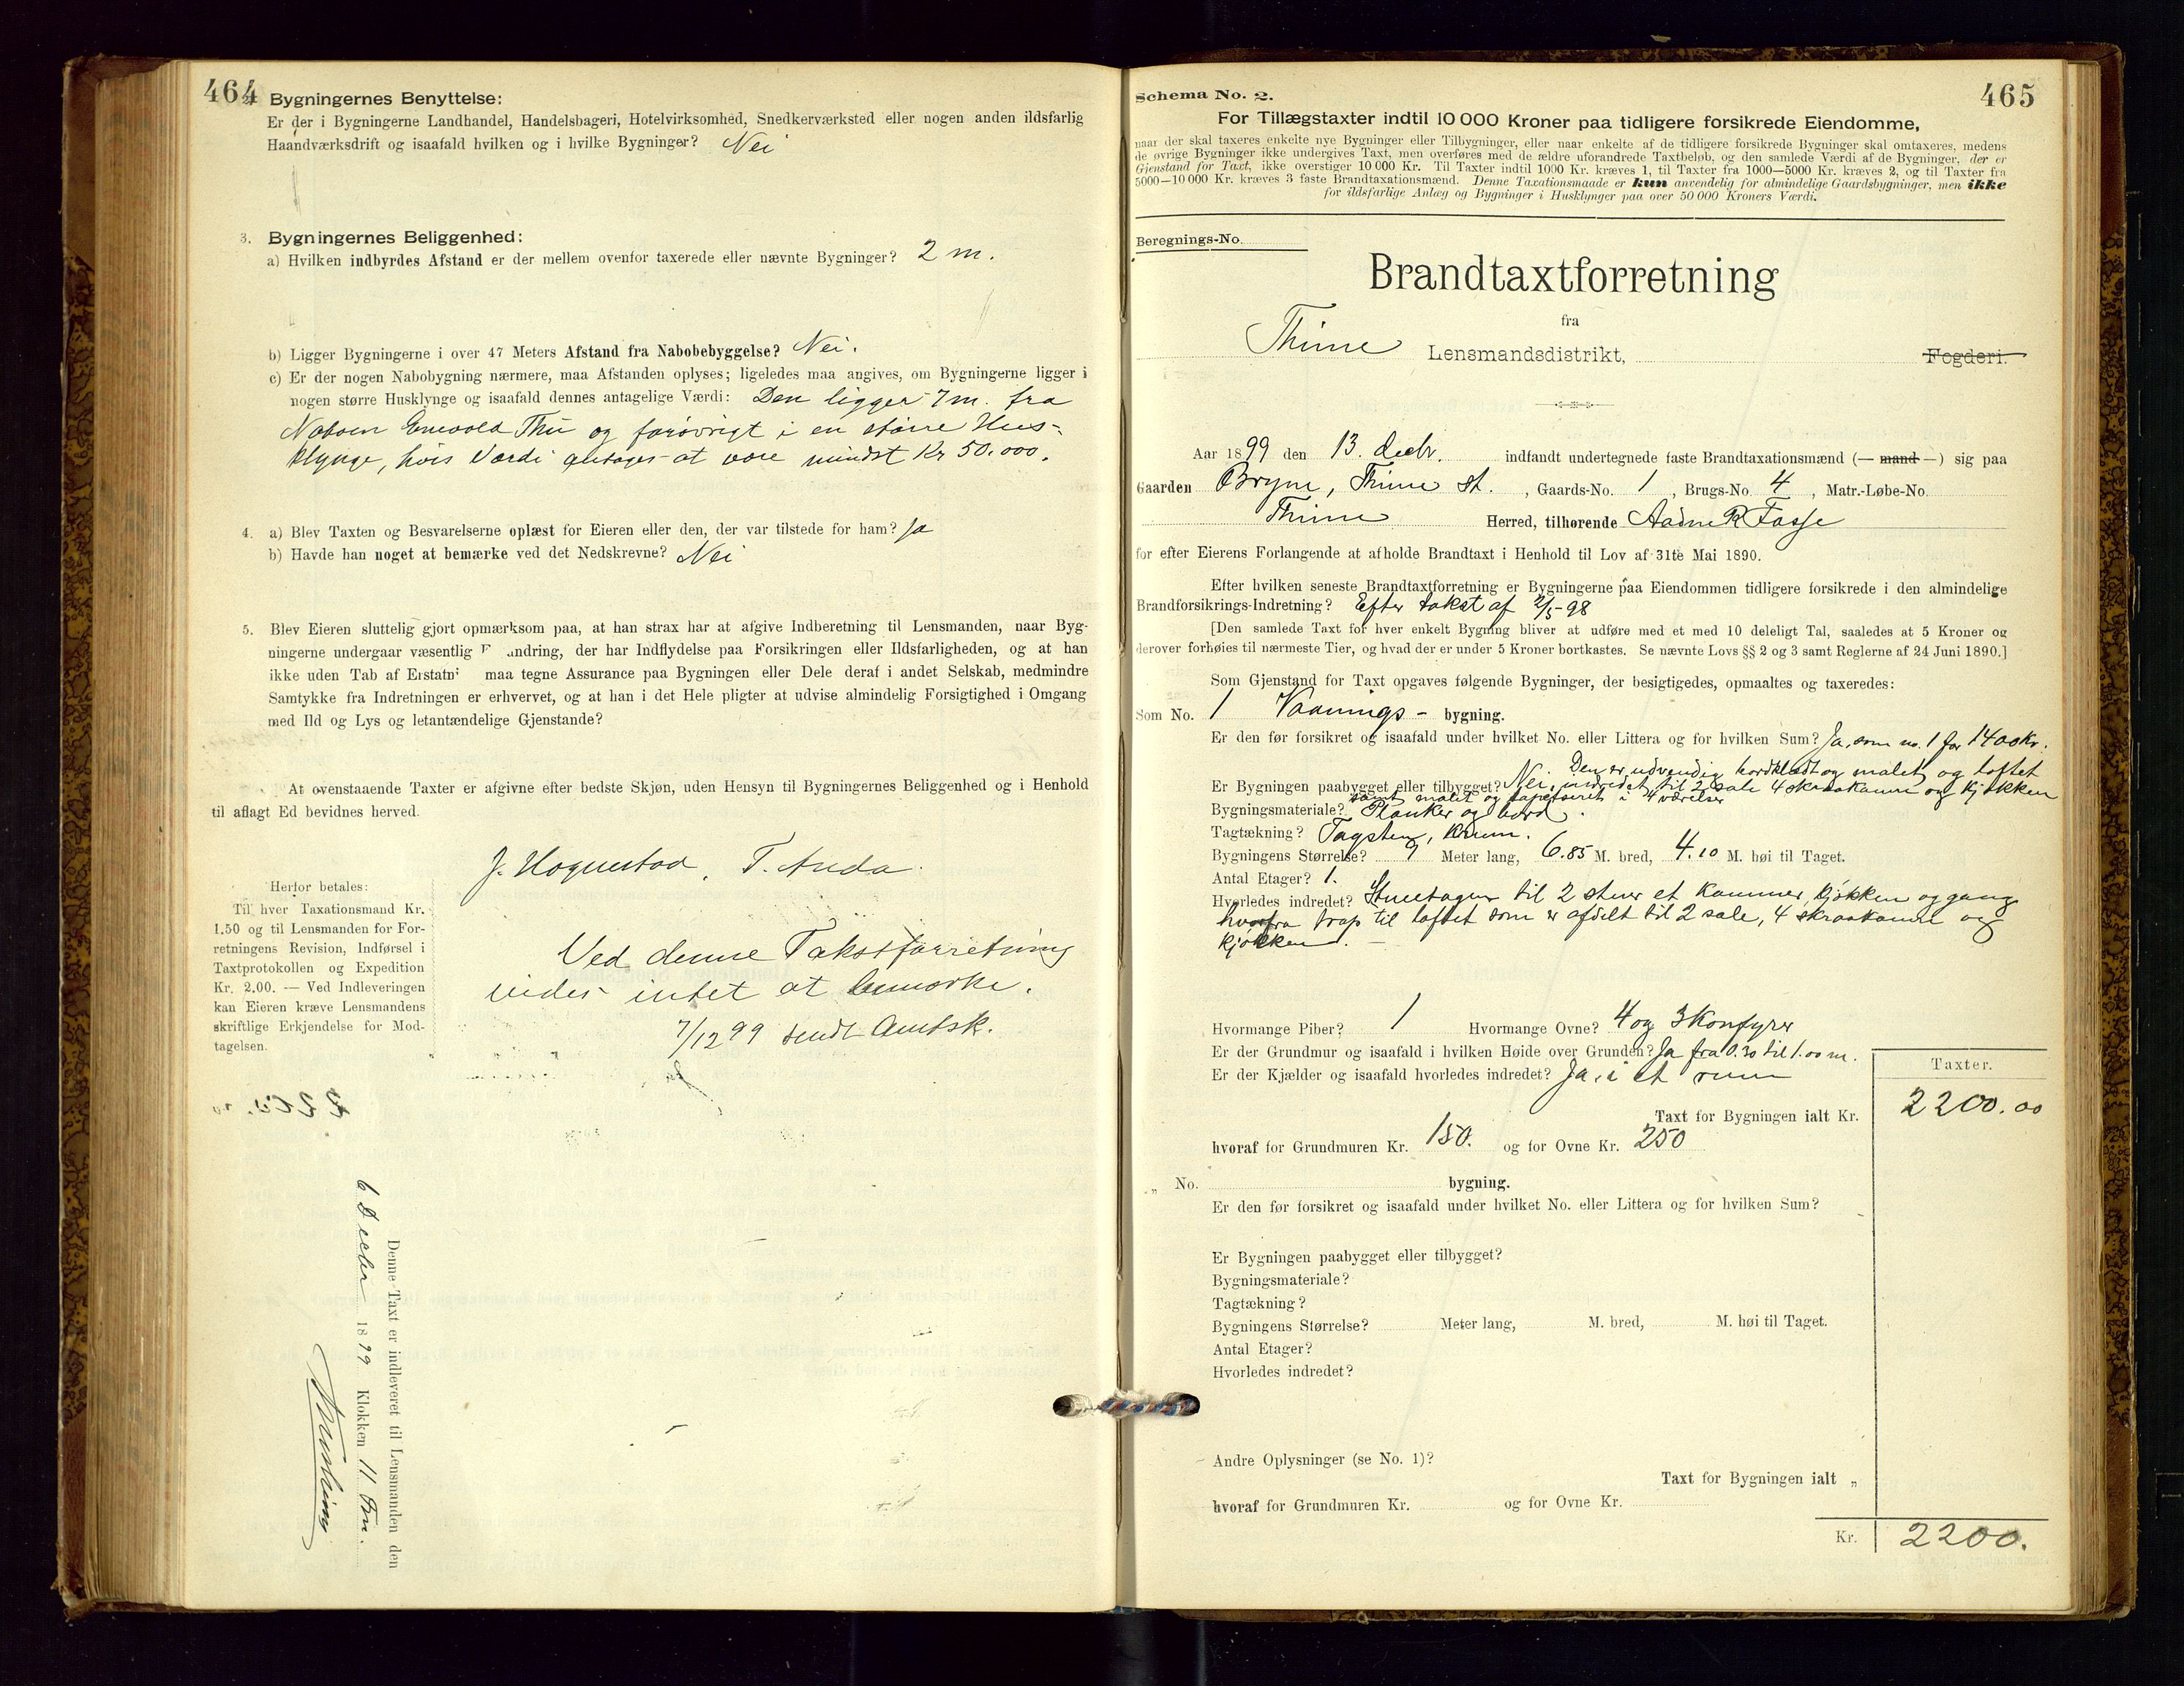 464
2. Bygningernes Benyttelse:
Er der i Bygningerne Landhandel, Handelsbageri, Hotelvirksomhed, Snedkerværksted eller nogen anden ildsfarlig
Haandværksdrift og isaafald hvilken og i hvilke Bygninger? Nei
3. Bygningernes Beliggenhed:
a) Hvilken indbyrdes Afstand er der mellem ovenfor taxerede eller nævnte Bygninger? 2 m.
b) Ligger Bygningerne i over 47 Meters Afstand fra Nabobebyggelse? Nei.
c) Er der nogen Nabobygning nærmere, maa Afstanden oplyses; ligeledes maa angives, om Bygningerne ligger i
nogen større Husklynge og isaafald dennes antagelige Værdi: Den ligger 7 m. fra
Naboen Enevold Thu og forøvrigt i en større Hus-
klynge, hvis Værdi antages at være mindst Kr 50.000.
4. a) Blev Taxten og Besvarelserne oplæst for Eieren eller den, der var tilstede for ham? Ja
b) Havde han noget at bemærke ved det Nedskrevne? Nei
5. Blev Eieren sluttelig gjort opmærksom paa, at han strax har at afgive Indberetning til Lensmanden, naar Byg-
ningerne undergaar væsentlig F andring, der har Indflydelse paa Forsikringen eller Ildsfarligheden, og at han
ikke uden Tab af Erstatn maa tegne Assurance paa Bygningen eller Dele deraf i andet Selskab, medmindre
Samtykke fra Indretningen er erhvervet, og at han i det Hele pligter at udvise almindelig Forsigtighed i Omgang
med Ild og Lys og letantændelige Gjenstande?
At ovenstaaende Taxter er afgivne efter bedste Skjøn, uden Hensyn til Bygningernes Beliggenhed og i Henhold
til aflagt Ed bevidnes herved.
J. Hognestad, T. Anda.
Herfor betales:
Til hver Taxationsmand Kr.
1.50 og til Lensmanden for For-
retningens Revision, Indførsel i
Taxtprotokollen og Expedition
Kr. 2.00. — Ved Indleveringen
kan Eieren kræve Lensmandens
skriftlige Erkjendelse for Mod-
tagelsen.
Ved denne Takstforretning
vides intet at bemærke.
7/12 99 sendt Amtsk.
Denne Taxt er indleveret til Lensmanden den
6 Decbr 1899 Klokken 11 Fm.
465
Schema No. 2.
For Tillægstaxter indtil 10 000 Kroner paa tidligere forsikrede Eiendomme,
naar der skal taxeres enkelte nye Bygninger eller Tilbygninger, eller naar enkelte af de tidligere forsikrede Bygninger skal omtaxeres, medens
de øvrige Bygninger ikke undergives Taxt, men overføres med de ældre uforandrede Taxtbeløb, og den samlede Værdi af de Bygninger, der er
Gjenstand for Taxt, ikke overstiger 10 000 Kr. Til Taxter indtil 1000 Kr. kræves 1, til Taxter fra 1000—5000 Kr. kræves 2, og til Taxter fra
5000—10 000 Kr. kræves 3 faste Brandtaxationsmænd. Denne Taxationsmaade er kun anvendelig for almindelige Gaardsbygninger, men ikke
for ildsfarlige Anlæg og Bygninger i Husklynger paa over 50 000 Kroners Værdi.
Beregnings-No.
Brandtaxtforretning
fra
Thime Lensmandsdistrikt, Fogderi.
Aar 1899 den 13. decbr. indfandt undertegnede faste Brandtaxationsmænd (— mand —) sig paa
Gaarden Bryne, Thime st., Gaards-No. 1, Brugs-No. 4, Matr.-Løbe-No.
Thime Herred, tilhørende Aadne R Fosse
for efter Eierens Forlangende at afholde Brandtaxt i Henhold til Lov af 31te Mai 1890.
Efter hvilken seneste Brandtaxtforretning er Bygningerne paa Eiendommen tidligere forsikrede i den almindelige
Brandforsikrings-Indretning? Efter takst af 2/5-98
[Den samlede Taxt for hver enkelt Bygning bliver at udføre med et med 10 deleligt Tal, saaledes at 5 Kroner og
derover forhøies til nærmeste Tier, og hvad der er under 5 Kroner bortkastes. Se nævnte Lovs §§ 2 og 3 samt Reglerne af 24 Juni 1890.]
Som Gjenstand for Taxt opgaves følgende Bygninger, der besigtigedes, opmaaltes og taxeredes:
Som No. 1 Vaanings- bygning.
Er den før forsikret og isaafald under hvilket No. eller Littera og for hvilken Sum? Ja, som no. 1 for 1400 Kr.
Den er udvendig bordklædt og malet og loftet
Er Bygningen paabygget eller tilbygget? Nei, indredet til 2 sale 4 skraakamre og kjøkken
samt malet og tapetseret i 4 værelser
Bygningsmateriale? Planker og bord.
Tagtækning? Tagsten, krum.
Bygningens Størrelse? 9 Meter lang, 6.85 M. bred, 4.10 M. høi til Taget.
Antal Etager? 1.
Hvorledes indredet? Stueetagen til 2 stuer et kammer, kjøkken og gang
hvorfra trap til loftet som er afdelt til 2 sale, 4 skraakamre og
kjøkken.
Hvormange Piber? 1 Hvormange Ovne? 4 og 3 komfyrer
Er der Grundmur og isaafald i hvilken Høide over Grunden? Ja fra 0.30 til 1.00 m.
Er der Kjælder og isaafald hvorledes indredet? Ja, i et rum
Taxter.
Taxt for Bygningen ialt Kr. 2200.00
hvoraf for Grundmuren Kr. 150. og for Ovne Kr. 250
„ No. bygning.
Er den før forsikret og isaafald under hvilket No. eller Littera og for hvilken Sum?
Er Bygningen paabygget eller tilbygget?
Bygningsmateriale?
Tagtækning?
Bygningens Størrelse? Meter lang, M. bred, M. høi til Taget.
Antal Etager?
Hvorledes indredet?
Andre Oplysninger (se No. 1)?
Taxt for Bygningen ialt „
hvoraf for Grundmuren Kr. og for Ovne Kr.
Kr. 2200.